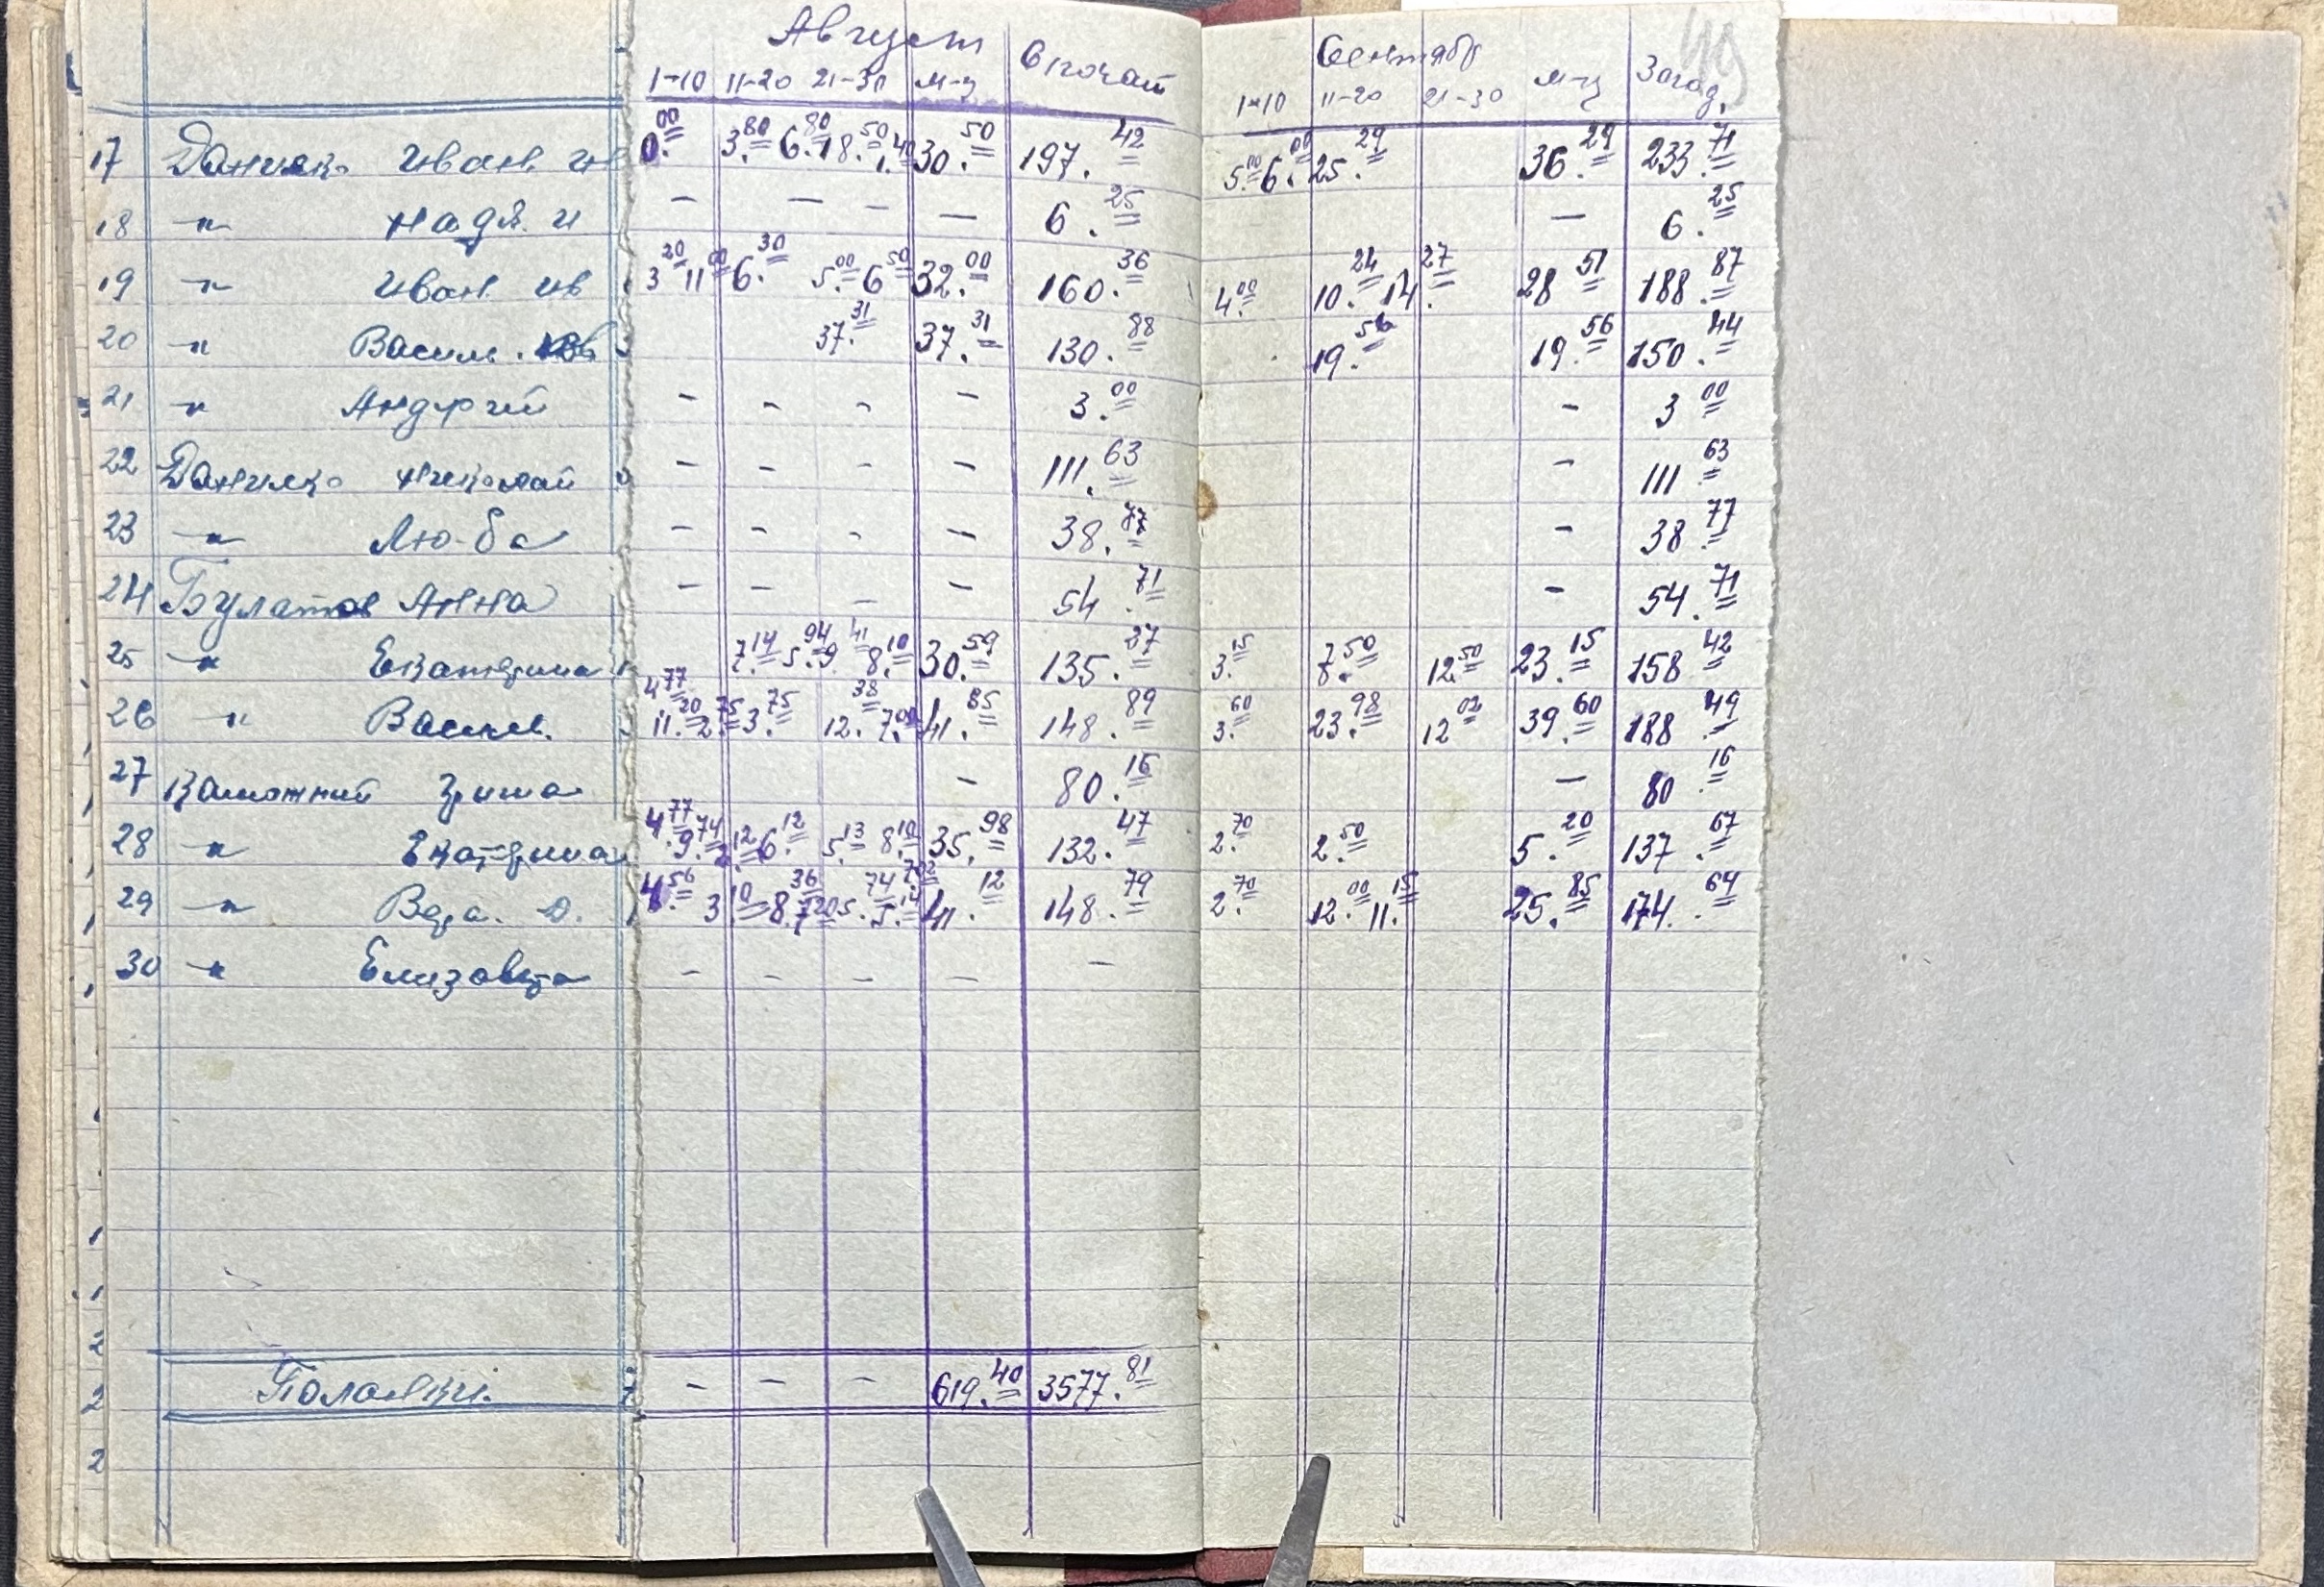 49
Август В початі Сентябр Загал.
1-10 11-20 21-30 м-ц 1-10 11-20 21-30 м-ц
17 Данилко Иван. Ив 0.00 3.80 6.80 18.50 1.40 30.50 197.42 5.00 6.00 25.29 36.29 233.71
18 -"- Надя. И — — — — 6.25 — 6.25
19 -"- Иван. Ив 3.20 11.00 6.30 5.00 6.50 32.00 160.36 4.00 10.24 14.27 28.51 188.87
20 -"- Васил. 37.31 37.31 130.88 19.56 19.56 150.44
21 -"- Андрей - - - - 3.00 - 3.00
22 Данилко Николай - - - - 111.63 - 111.63
23 -"- Люба - - - - 38.77 - 38.77
24 Булатов Анна - - - - 54.71 - 54.71
25 -"- Екатерина 7.14 5.94 9.41 8.10 30.59 135.27 3.15 7.50 12.50 23.15 158.42
26 -"- Васил. 4.77 11.20 2.75 3.75 12.38 7.00 41.85 148.89 3.60 23.98 12.02 39.60 188.49
27 Заможний Гриша - 80.16 - 80.16
28 -"- Екатерина 4.77 9.74 2.12 6.12 5.13 8.10 35.98 132.47 2.70 2.50 5.20 137.67
29 -"- Вера. D. 4.56 3.10 8.36 7.20 5.74 5.14 7.02 41.12 148.79 2.70 12.00 11.15 25.85 174.64
30 -"- Елизавета - - - - -
- - - 619.40 3577.81